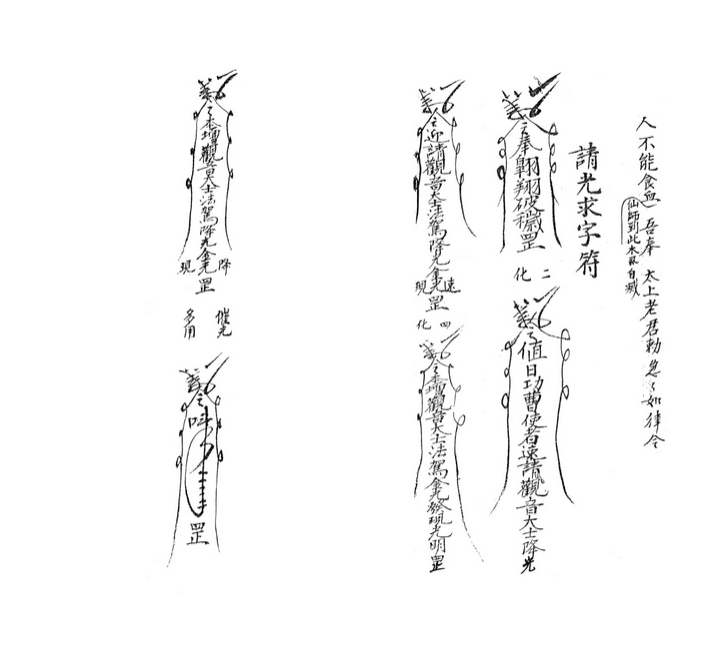 人不能食血 吾奉 太上老君勅 急々如律令
仙師到此水
請光求字符
令奉翱翔破穢罡
二化
令值日功曹使者速請觀音大士降光
令迎請觀音大士法駕降光金光速現罡
四化
令本壇觀音大士法駕金光發現光明罡
令本壇觀音大士法駕降光金光降現罡
催光多用
令
罡